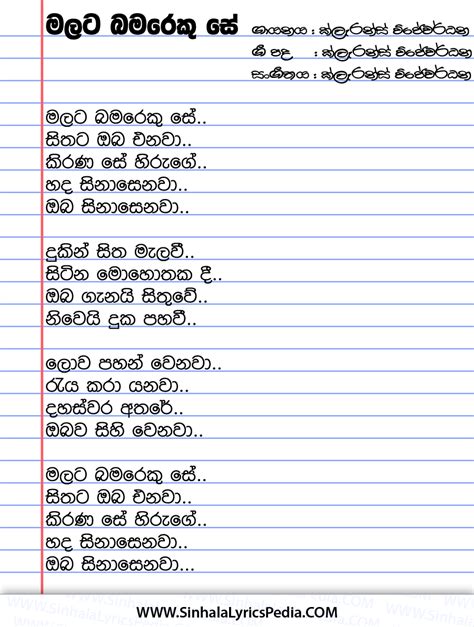 මලට බමරෙකු සේ
ගායනය : ක්ලැරන්ස් විජේවර්ධන
ගී පද : ක්ලැරන්ස් විජේවර්ධන
සංගීතය : ක්ලැරන්ස් විජේවර්ධන
මලට බමරෙකු සේ..
සිතට ඔබ එනවා..
කිරණ සේ හිරුගේ..
හද සිනාසෙනවා..
ඔබ සිනාසෙනවා..
දුකින් සිත මැලවී..
සිටින මොහොතක දී..
ඔබ ගැනයි සිතුවේ..
නිවෙයි දුක පහවී..
ලොව පහන් වෙනවා..
රැය කරා යනවා..
දහස්වර අතරේ..
ඔබව සිහි වෙනවා..
මලට බමරෙකු සේ..
සිතට ඔබ එනවා..
කිරණ සේ හිරුගේ..
හද සිනාසෙනවා..
ඔබ සිනාසෙනවා...
www.SinhalaLyricsPedia.COM